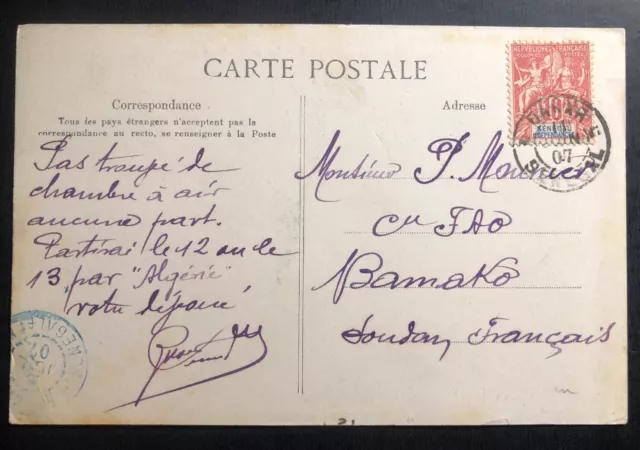 CARTE POSTALE
Correspondance
Tous les pays étrangers n'acceptent pas la
correspondance au recto, se renseigner à la Poste
Adresse
REPUBLIQUE FRANÇAISE
COLONIES POSTES
SENEGAL
DAKAR
07
SENEGAL
Pas trouvé de
chambre à air
aucune part.
Partirai le 12 ou le
13 par "Algérie"
votre dévoué
Monsieur P. Mounier
Cie FAO
Bamako
Soudan Français
SENEGAL
07
21